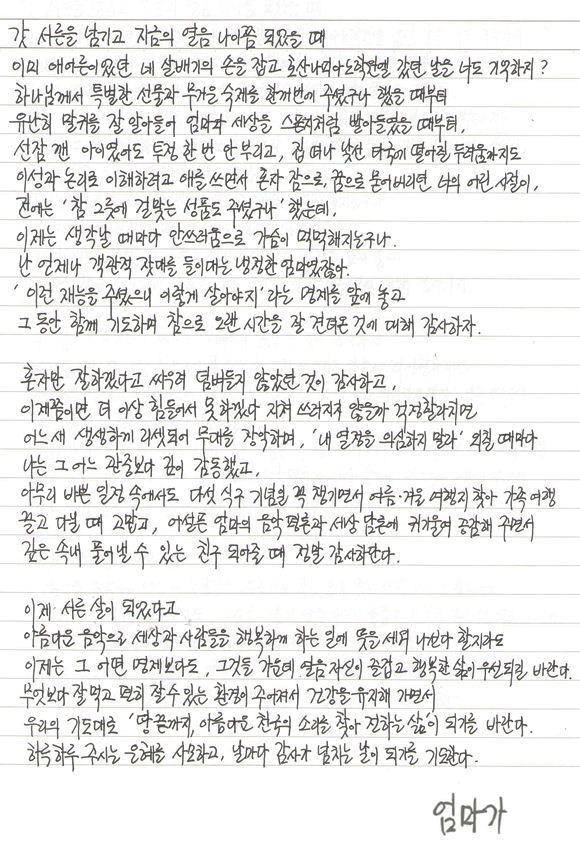 갓 서른을 넘기고 지금의 열음 나이쯤 되었을 때
이미 애어른이었던 네 살배기의 손을 잡고 호산나피아노학원엘 갔던 날을 너도 기억하지?
하나님께서 특별한 선물과 무거운 숙제를 한꺼번에 주셨구나 했을 때부터
유난히 말귀를 잘 알아들어 엄마와 세상을 스폰지처럼 빨아들였을 때부터,
선잠 깬 아이였어도 투정 한 번 안 부리고, 집 떠나 낯선 타국에 떨어질 두려움까지도
이성과 논리로 이해하려고 애를 쓰면서 혼자 잠으로, 꿈으로 묻어버리던 너의 어린 시절이,
전에는 '참 그릇에 걸맞는 성품도 주셨구나' 했는데,
이제는 생각날 때마다 안쓰러움으로 가슴이 먹먹해지는구나.
난 언제나 객관적 잣대를 들이대는 냉정한 엄마였잖아.
'이런 재능을 주셨으니 이렇게 살아야지'라는 명제를 앞에 놓고
그 동안 함께 기도하며 참으로 오랜 시간을 잘 견뎌온 것에 대해 감사하자.
혼자만 잘하겠다고 싸우려 덤벼들지 않았던 것이 감사하고,
이제쯤이면 더 이상 힘들어서 못하겠다 지쳐 쓰러지지 않을까 걱정할라치면
어느새 생생하게 리셋되어 무대를 장악하며, '내 열정을 의심하지 말라' 외칠 때마다
나는 그 어느 관중보다 깊이 감동했고,
아무리 바쁜 일정 속에서도 다섯 식구 기념일 꼭 챙기면서 여름·겨울 여행지 찾아 가족여행
끌고 다닐 때 고맙고, 어설픈 엄마의 음악 평론과 세상 담론에 귀기울여 공감해 주면서
깊은 속내 풀어낼 수 있는 친구 되어줄 때 정말 감사하단다.
이제 서른 살이 되었다고
아름다운 음악으로 세상과 사람들을 행복하게 하는 일에 뜻을 세워 나선다 할지라도
이제는 그 어떤 명제보다도, 그것들 가운데 열음 자신이 즐겁고 행복한 삶이 우선되길 바란다.
무엇보다 잘 먹고 편히 잘 수 있는 환경이 주어져서 건강을 유지해 가면서
우리의 기도대로 '땅끝까지, 아름다운 천국의 소리를 찾아 전하는 삶'이 되기를 바란다.
하루하루 주시는 은혜를 사모하고, 날마다 감사가 넘치는 날이 되기를 기도한다.
엄마가